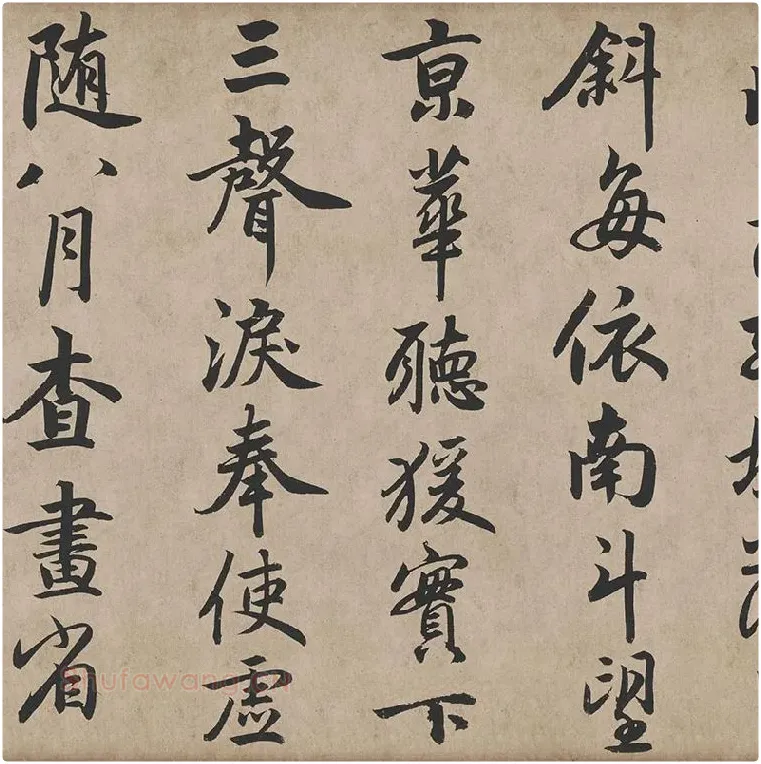 斜每依南斗望
京華聽猨實下
三聲淚奉使虛
隨八月查畫省
shufawang.cn